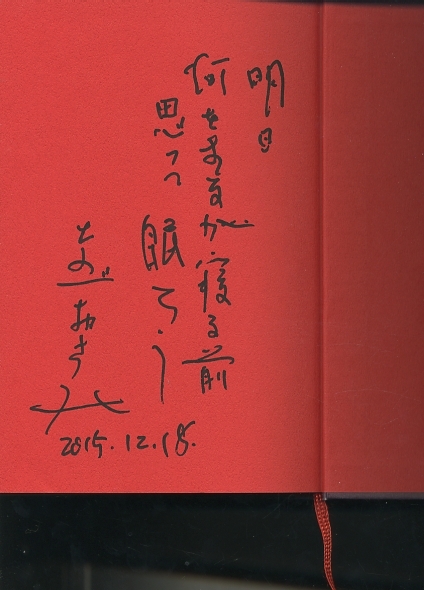 明日
何をするか寝る前
思って 眠ろう
2015.12.18.